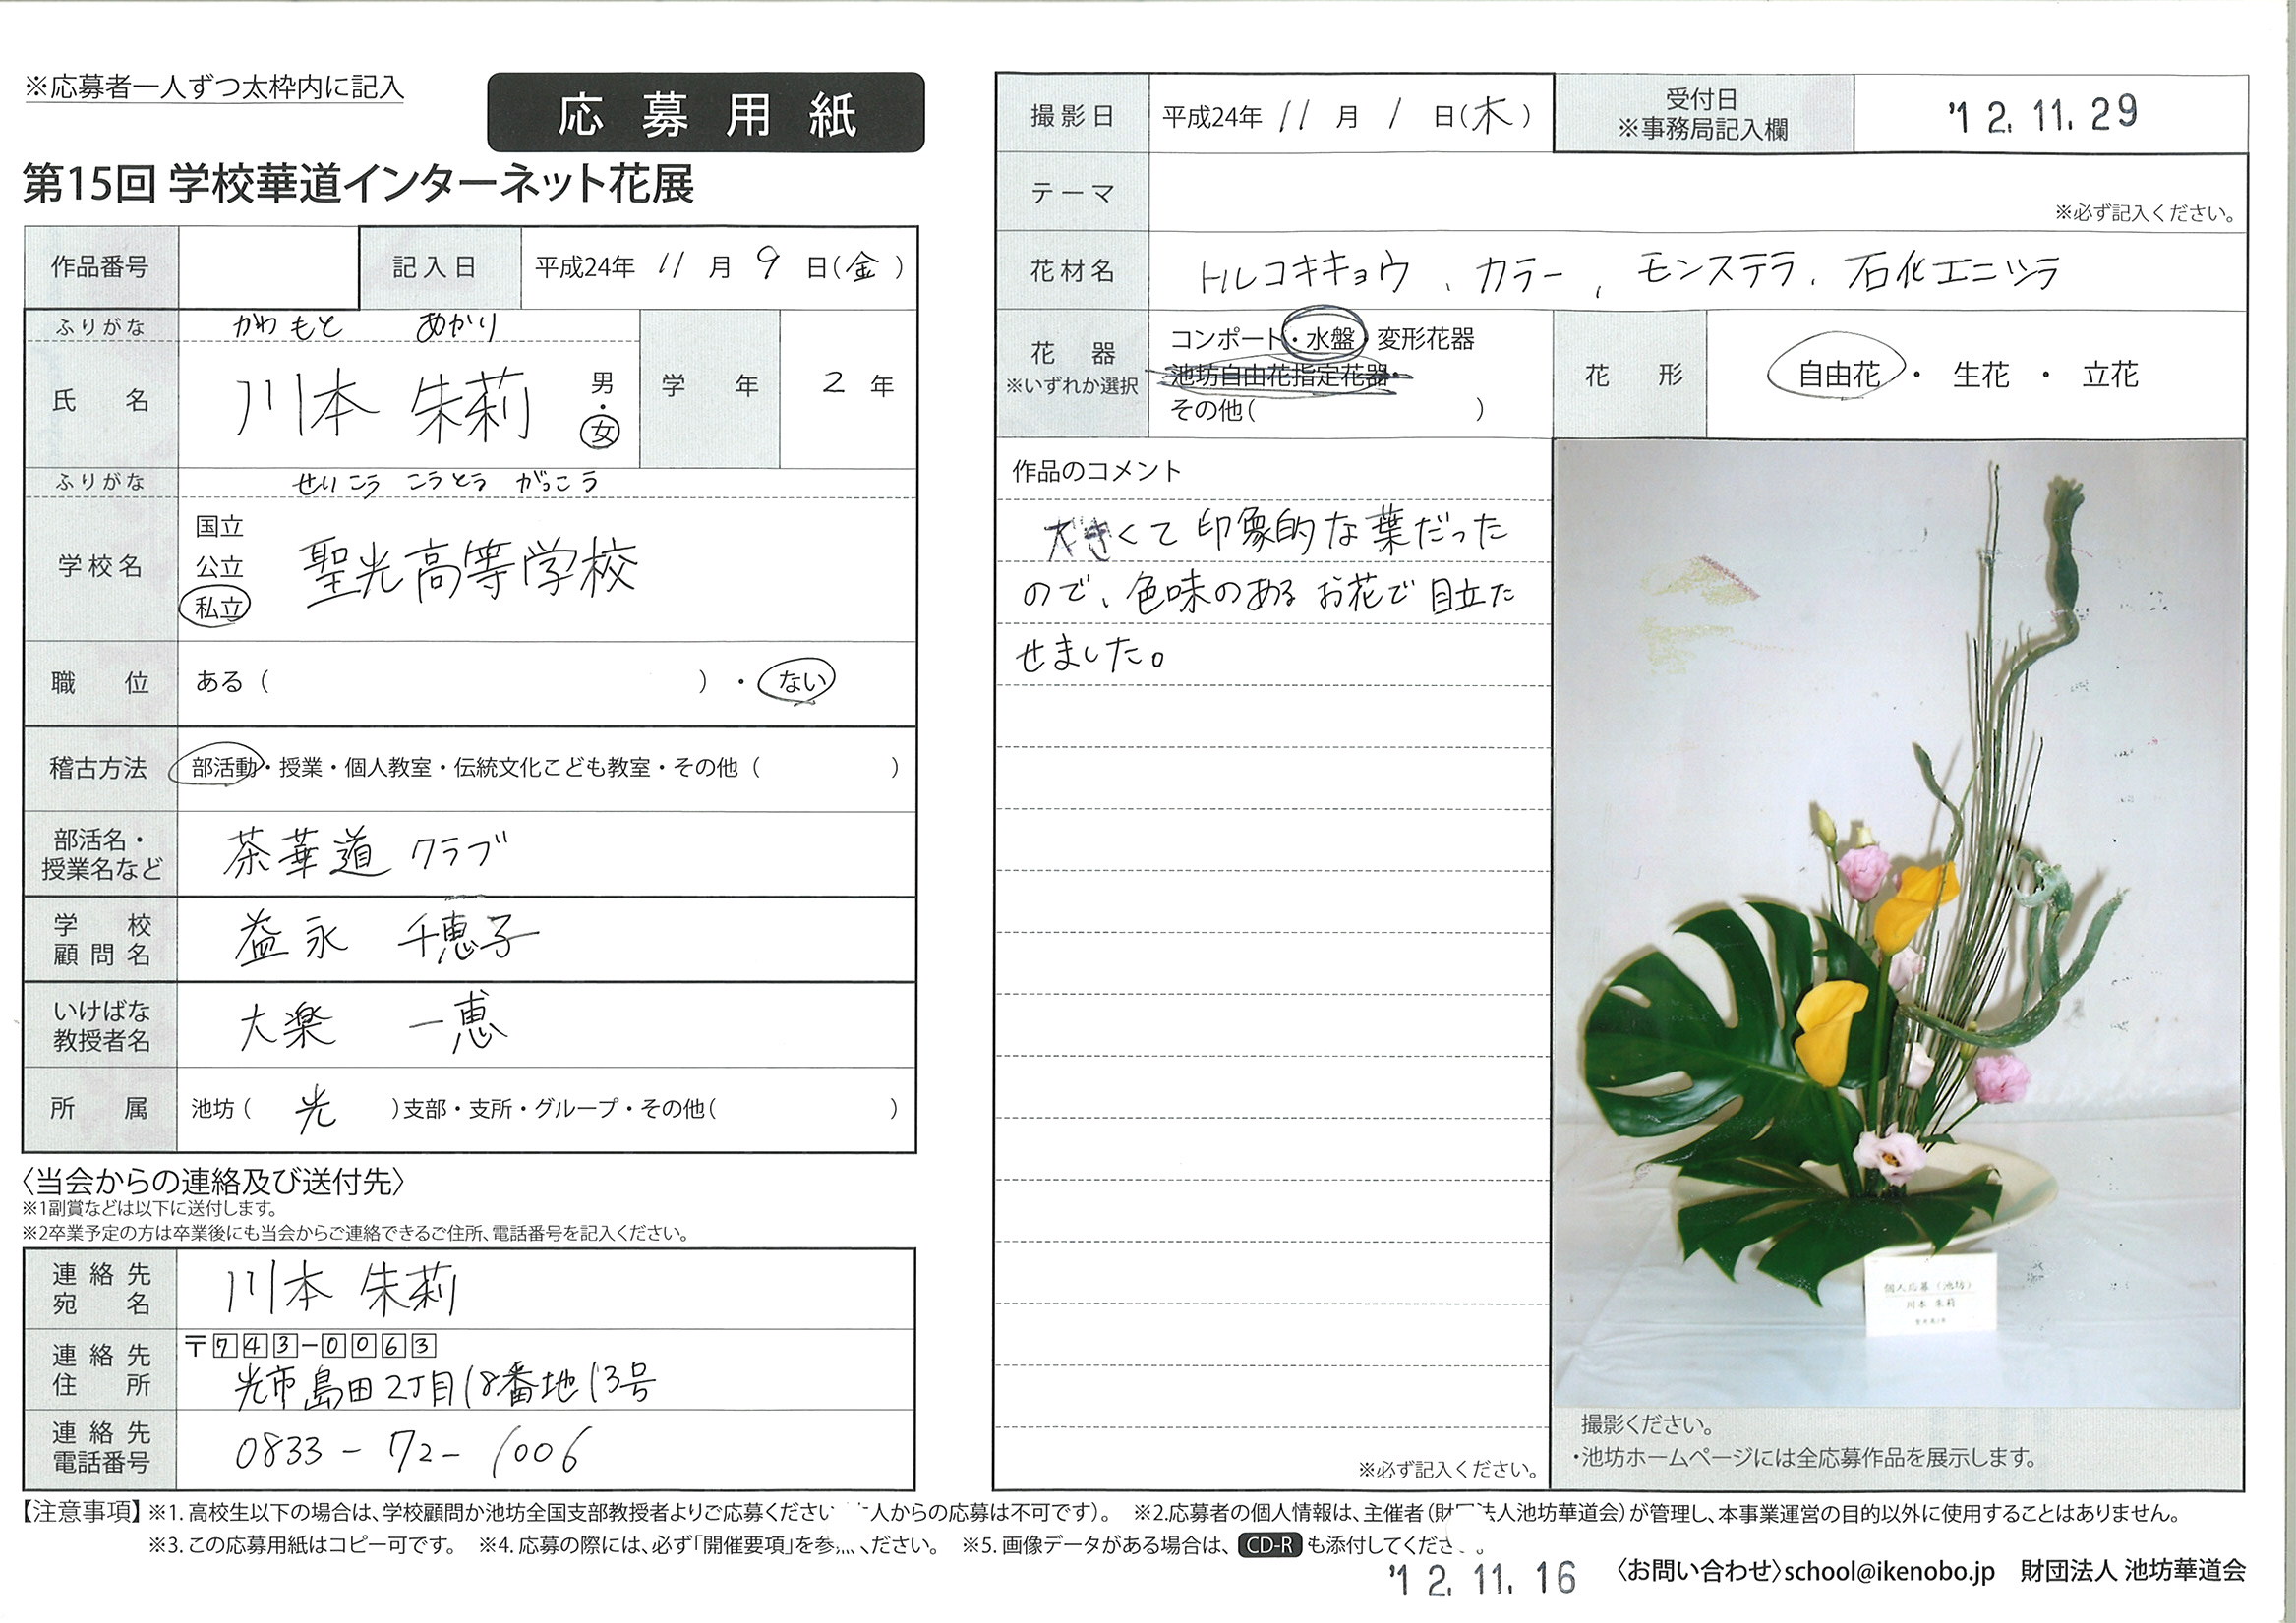 ※応募者一人ずつ太枠内に記入
応募用紙
第15回 学校華道インターネット花展
作品番号
記入日 平成24年 11月 9日(金)
ふりがな かわもと あかり
氏名 川本 朱莉 男・女
学年 2年
ふりがな せいこう こうとう がっこう
学校名 国立 公立 私立 聖光高等学校
職位 ある( )・ない
稽古方法 部活動・授業・個人教室・伝統文化こども教室・その他( )
部活名・授業名など 茶華道クラブ
学校顧問名 益永 千恵子
いけばな教授者名 大楽 一恵
所属 池坊( 光 )支部・支所・グループ・その他( )
〈当会からの連絡及び送付先〉
※1副賞などは以下に送付します。
※2卒業予定の方は卒業後にも当会からご連絡できるご住所、電話番号を記入ください。
連絡先宛名 川本 朱莉
連絡先住所 〒743-0063
光市島田2丁目18番地13号
連絡先電話番号 0833-72-1006
撮影日 平成24年 11月 1日(木)
受付日 ※事務局記入欄 '12.11.29
テーマ
※必ず記入ください。
花材名 トルコキキョウ、カラー、モンステラ、石化エニシダ
花器 ※いずれか選択
コンポート・水盤・変形花器
池坊自由花指定花器・
その他( )
花形 自由花・生花・立花
作品のコメント
大きくて印象的な葉だった
ので、色味のあるお花で目立た
せました。
※必ず記入ください。
個人応募(池坊)
川本 朱莉
撮影ください。
・池坊ホームページには全応募作品を展示します。
【注意事項】※1. 高校生以下の場合は、学校顧問か池坊全国支部教授者よりご応募ください 人からの応募は不可です)。 ※2.応募者の個人情報は、主催者(財 法人池坊華道会)が管理し、本事業運営の目的以外に使用することはありません。
※3. この応募用紙はコピー可です。 ※4. 応募の際には、必ず「開催要項」を参 ください。 ※5. 画像データがある場合は、CD-Rも添付してくださ
'12.11.16
〈お問い合わせ〉school@ikenobo.jp 財団法人 池坊華道会